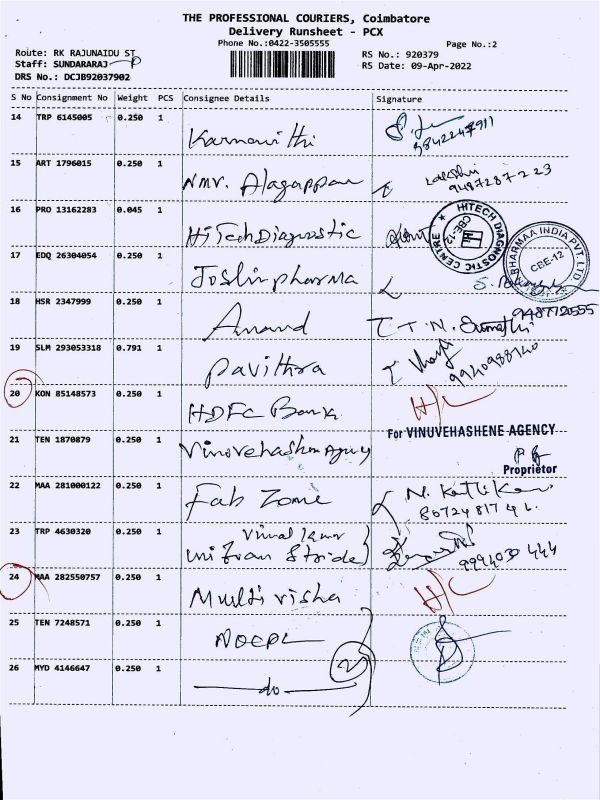 THE PROFESSIONAL COURIERS, Coimbatore
Delivery Runsheet - PCX
Phone No.:0422-3505555
Page No.:2
Route: RK RAJUNAIDU ST
RS No.: 920379
Staff: SUNDARARAJ
RS Date: 09-Apr-2022
DRS No.: DCJB92037902
S No Consignment No Weight PCS Consignee Details Signature
14 TRP 6145005 0.250 1
9842247911
15 ART 1796015 0.250 1 NMV. Alagappan Lakshmi
9487287223
16 PRO 13162283 0.045 1 HiTech Diagnostic
HITECH DIAGNOSTIC CENTRE CBE-12
17 EDQ 26304054 0.250 1 Joslin pharma
BHARMAA INDIA PVT. LTD CBE-12
18 HSR 2347999 0.250 1 Anand T.N. Sumathi
19 SLM 293053318 0.791 1 Pavithra
9940988140
20 KON 85148573 0.250 1 HDFC Bank H/C
21 TEN 1870879 0.250 1 For VINUVEHASHENE AGENCY
Proprietor
22 MAA 281000122 0.250 1 Fab Zone
23 TRP 4630320 0.250 1
9994030 444
24 MAA 282550757 0.250 1 Multi visha H/C
25 TEN 7248571 0.250 1
2
26 MYD 4146647 0.250 1 do